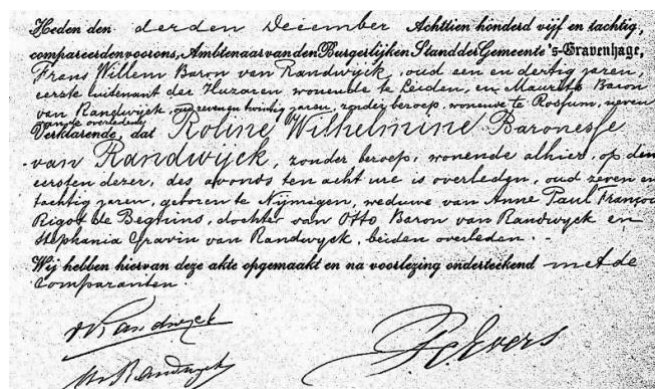 Heden den derden December Achttien honderd vijf en tachtig,
compareerden voor ons, Ambtenaar van den Burgerlijken Stand der Gemeente 's-Gravenhage,
Frans Willem Baron van Randwijck, oud een en dertig jaren,
eerste luitenant der Huzaren wonende te Leiden, en Maurits Baron
van Randwijck, oud zeven en twintig jaren, zonder beroep, wonende te Rossum, neven
van de overledene
Verklarende, dat Roline Wilhelmine Baronesse
van Randwijck, zonder beroep, wonende alhier, op den
eersten dezer, des avonds ten acht ure is overleden, oud zeven en
tachtig jaren, geboren te Nijmegen, weduwe van Anne Paul François
Rigot de Begnins, dochter van Otto Baron van Randwyck en
Stephania Gravin van Randwyck, beiden overleden.
Wij hebben hiervan deze akte opgemaakt en na voorlezing onderteekend met de
Comparanten.
Randwyck
Randwyck
Evers